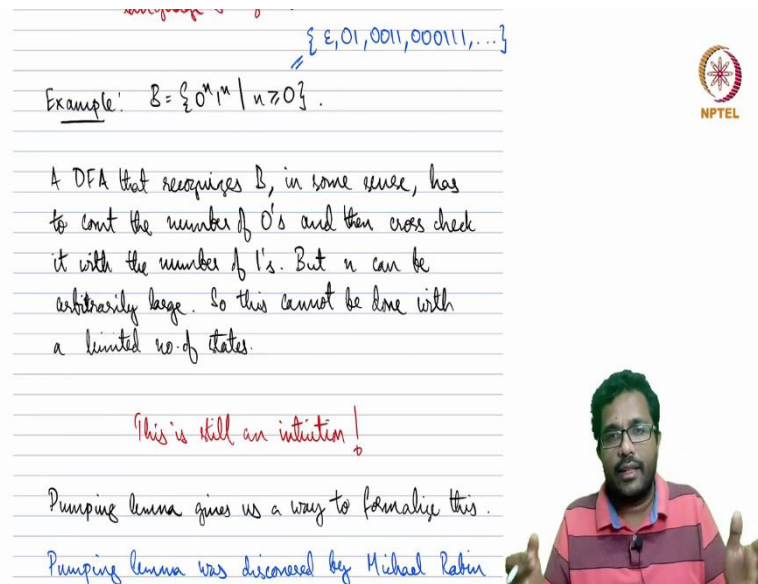 { ε, 01, 0011, 000111, ... }
NPTEL
Example: B = {0ⁿ1ⁿ | n ≥ 0}.
A DFA that recognizes B, in some sense, has
to count the number of 0's and then cross check
it with the number of 1's. But n can be
arbitrarily large. So this cannot be done with
a limited no. of states.
This is still an intuition!
Pumping lemma gives us a way to formalize this.
Pumping lemma was discovered by Michael Rabin